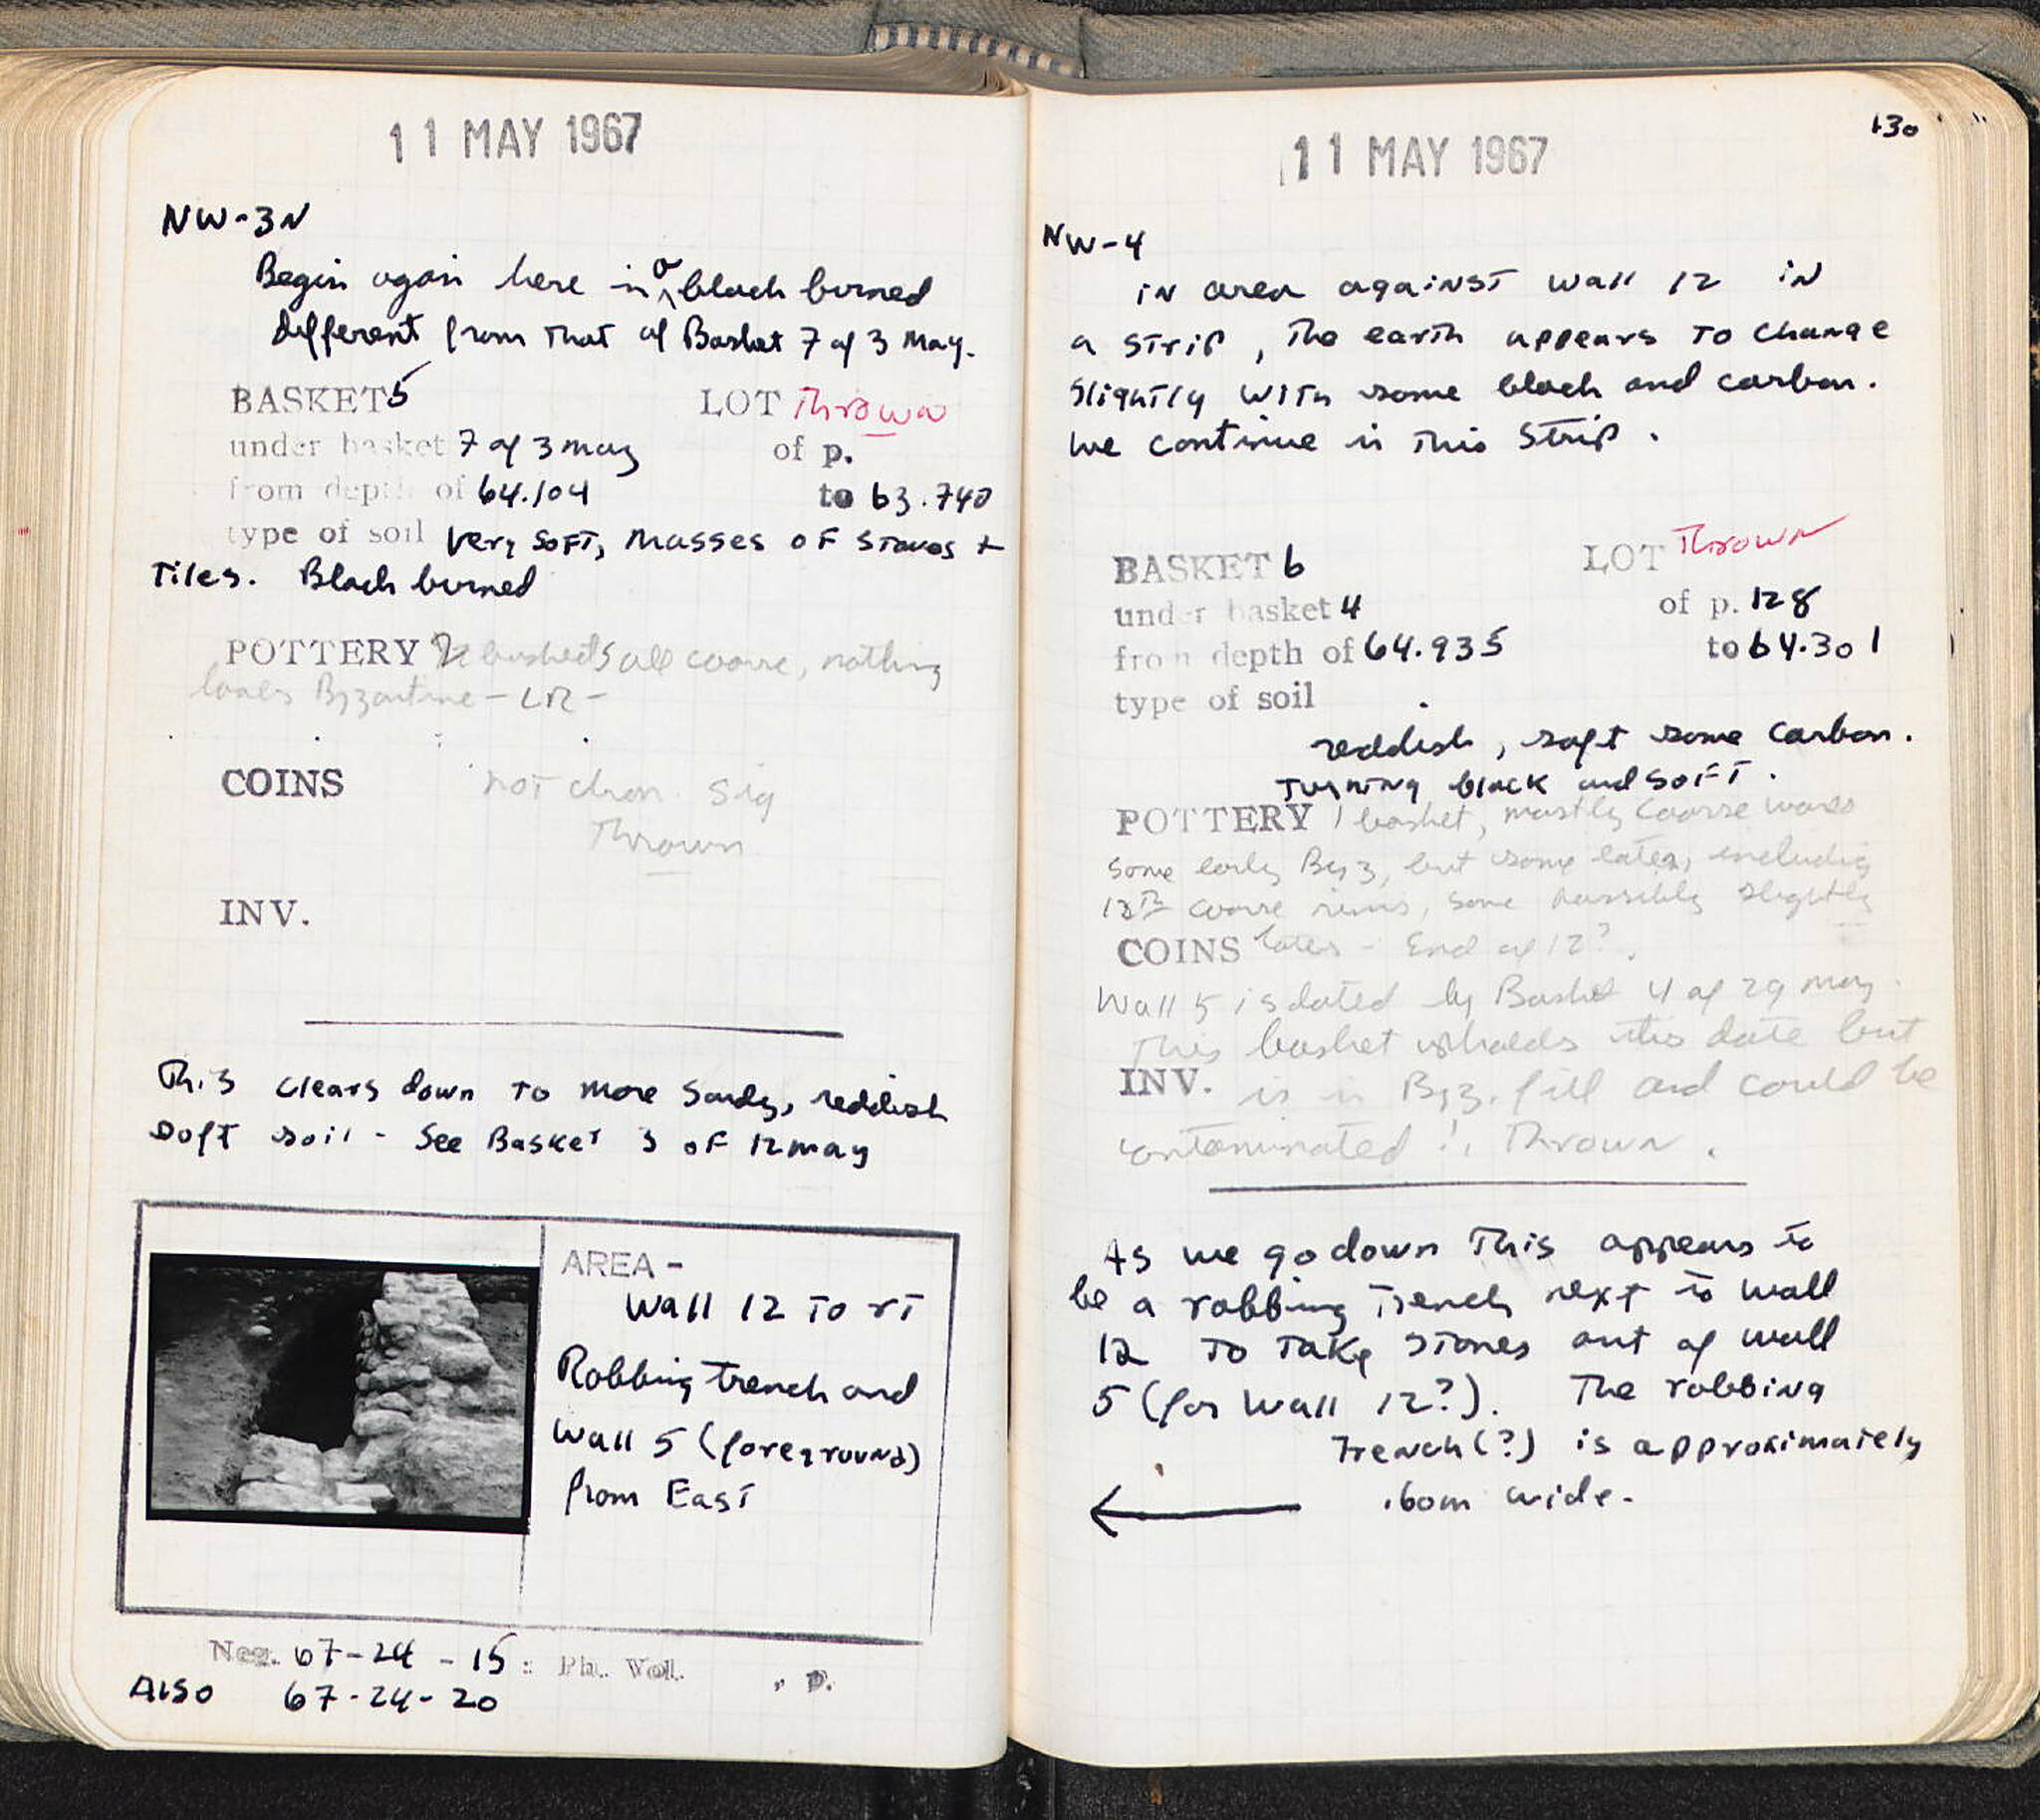 11 MAY 1967
NW-3N
Begin again here in a black burned
different from that of Basket 7 of 3 May.
BASKET 5 LOT Thrown
under basket 7 of 3 may of p.
from depth of 64.104 to 63.740
type of soil very soft, masses of stones +
Tiles. Black burned
POTTERY baskets all coarse, nothing
Byzantine - LR -
COINS not chron. sig
Thrown
INV.
This clears down to more sandy, reddish
soft soil - See Basket 3 of 12 may
AREA -
Wall 12 to rt
Robbing trench and
Wall 5 (foreground)
from East
Neg. 67-24-15: Ph. Vol. , p.
Also 67-24-20
130
11 MAY 1967
NW-4
in area against wall 12 in
a strip, the earth appears to change
slightly with some black and carbon.
We continue in this strip.
BASKET 6 LOT Thrown
under basket 4 of p. 128
from depth of 64.935 to 64.301
type of soil
reddish, soft some carbon.
Turning black and soft.
POTTERY 1 basket, mostly coarse wares
some early Byz, but some later, including
12th coarse rims, some possibly slightly
COINS later - End of 12?.
Wall 5 is dated by Basket 4 of 29 may.
This basket upholds this date but
INV. is in Byz. fill and could be
contaminated!! Thrown.
As we go down This appears to
be a robbing trench next to wall
12 to take stones out of wall
5 (for Wall 12?). The robbing
Trench(?) is approximately
.60m wide.